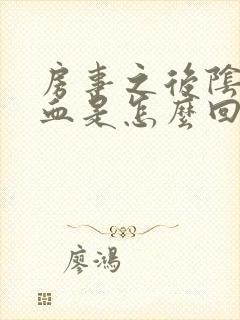 房事之後陰
血是怎麼回
廖鴻